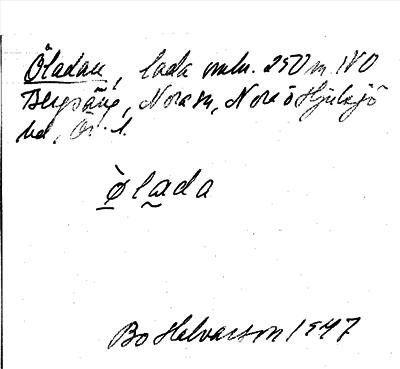 Öladan, lada omkr. 250 m NO
Bergsäng, Nora sn, Nora o Hjulsjö
hd, Ör. l.
òlada
Bo Helvarson 1947